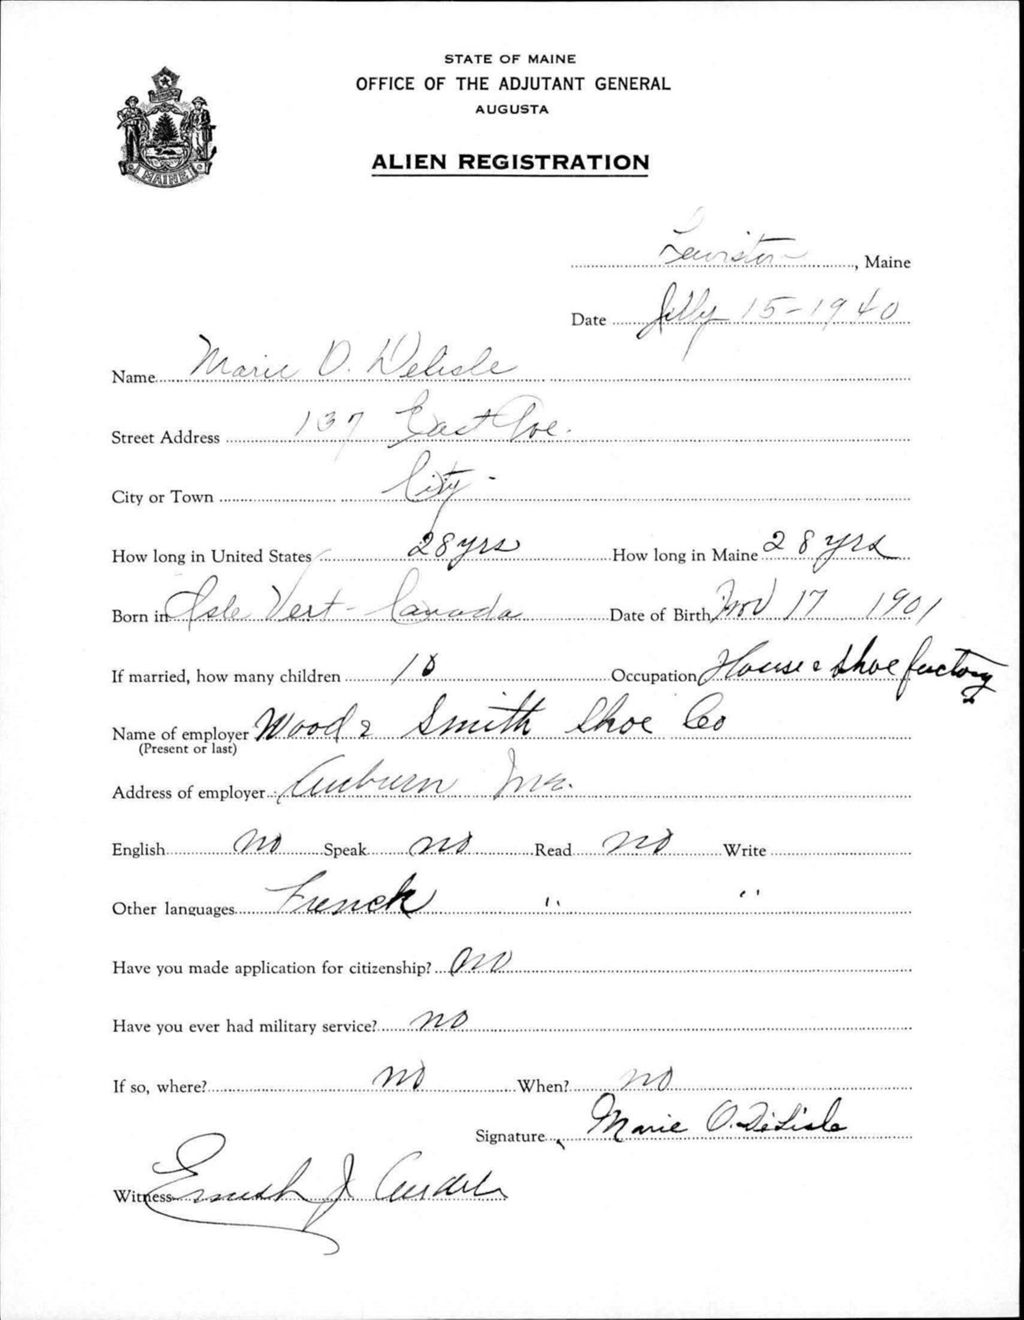 STATE OF MAINE
OFFICE OF THE ADJUTANT GENERAL
AUGUSTA
ALIEN REGISTRATION
MAINE
Lewiston, Maine
Date July 15-1940
Name Marie O. Delisle
Street Address 137 East Ave.
City or Town City -
How long in United States 28 yrs How long in Maine 28 yrs
Born in Isle Vert - Canada Date of Birth Nov 17 1901
If married, how many children 10 Occupation House & Shoe factory
Name of employer Wood & Smith Shoe Co
(Present or last)
Address of employer Auburn Me.
English no Speak no Read no Write
Other languages French " "
Have you made application for citizenship? no
Have you ever had military service? no
If so, where? no When? no
Signature Marie O. DeLisle
Witness J